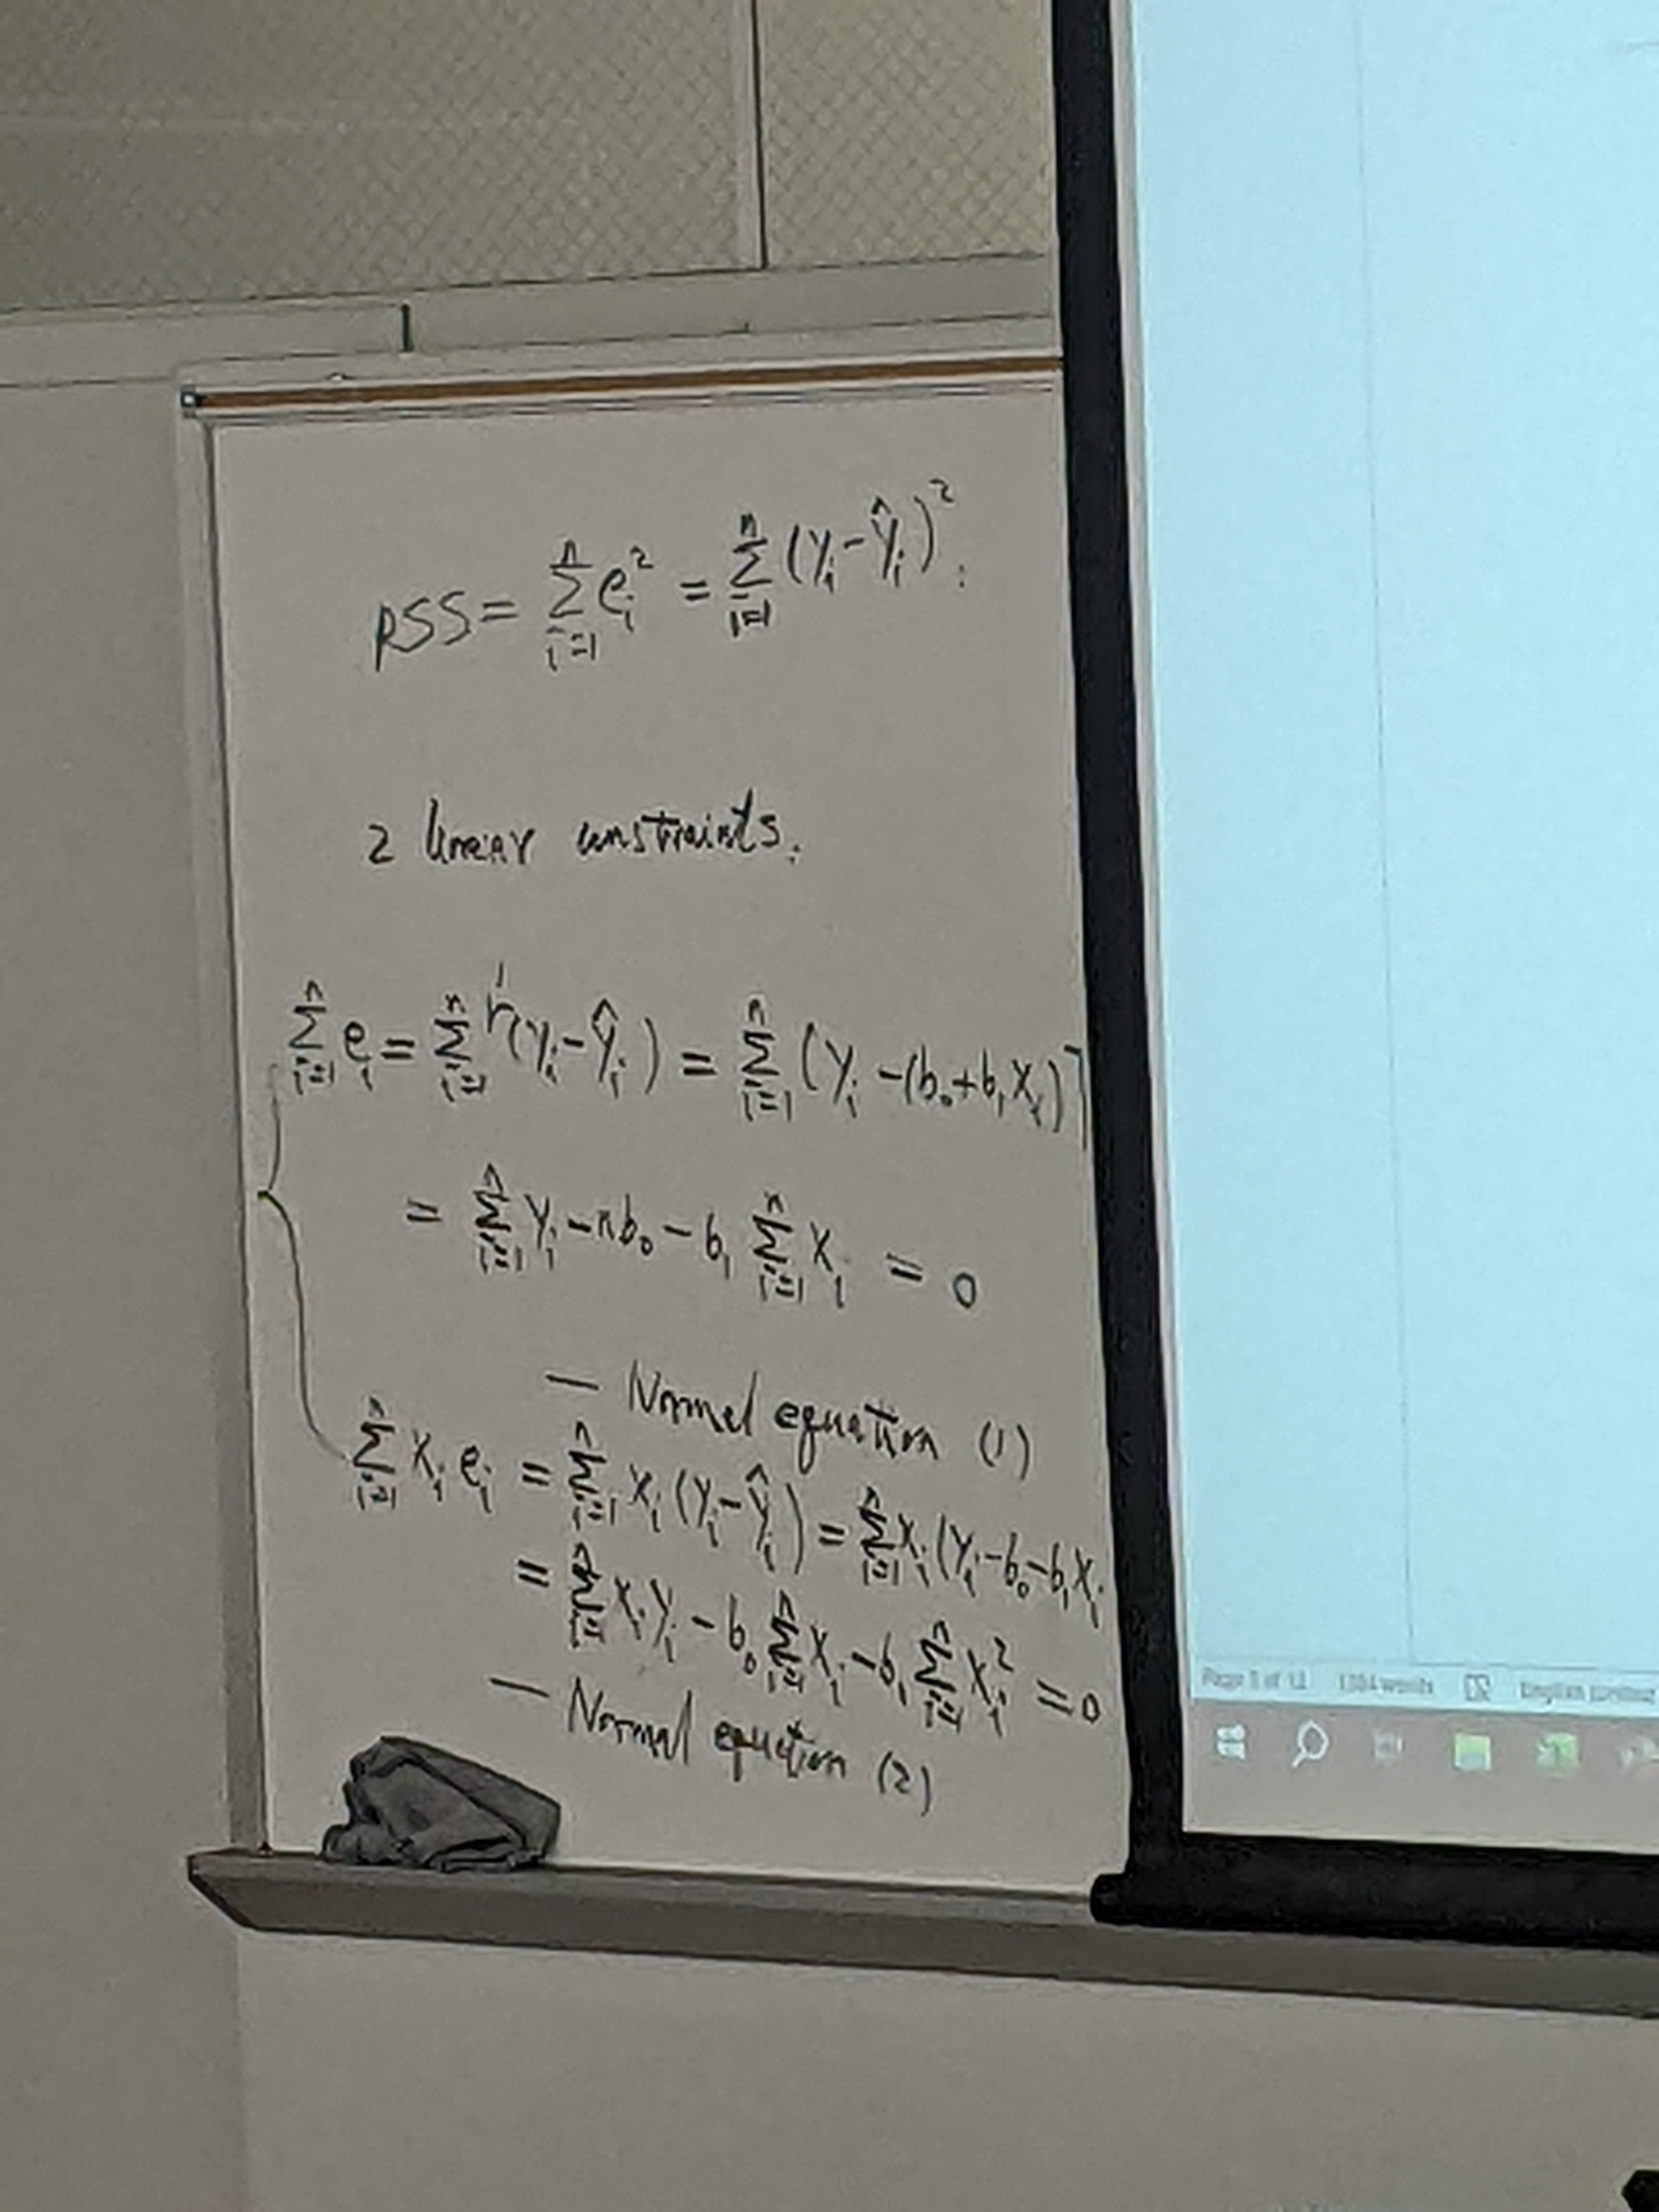 RSS = \sum_{i=1}^{n} e_i^2 = \sum_{i=1}^{n} (y_i - \hat{y}_i)^2 :
2 linear constraints.
\sum_{i=1}^{n} e_i = \sum_{i=1}^{n} (y_i - \hat{y}_i) = \sum_{i=1}^{n} (y_i - (b_0 + b_1 x_i)]
= \sum_{i=1}^{n} y_i - n b_0 - b_1 \sum_{i=1}^{n} x_i = 0
— Normal equation (1)
\sum_{i=1}^{n} x_i e_i = \sum_{i=1}^{n} x_i (y_i - \hat{y}_i) = \sum_{i=1}^{n} x_i (y_i - b_0 - b_1 x_i
= \sum_{i=1}^{n} x_i y_i - b_0 \sum_{i=1}^{n} x_i - b_1 \sum_{i=1}^{n} x_i^2 = 0
— Normal equation (2)
words English